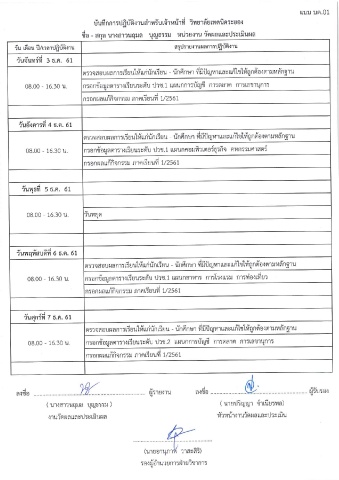 แบบ นค.01
บันทึกการปฏิบัติงานสำหรับเจ้าหน้าที่ วิทยาลัยเทคนิคระยอง
ชื่อ - สกุล นางสาวนฤมล บุญธรรม หน่วยงาน วัดผลและประเมินผล
วัน เดือน ปี/เวลาปฏิบัติงาน สรุปรายงานผลการปฏิบัติงาน
วันจันทร์ที่ 3 ธ.ค. 61
ตรวจสอบผลการเรียนให้แก่นักเรียน - นักศึกษา ที่มีปัญหาและแก้ไขให้ถูกต้องตามหลักฐาน
08.00 - 16.30 น. กรอกข้อมูลตารางเรียนระดับ ปวช.1 แผนกการบัญชี การตลาด การเลขานุการ
กรอกผลแก้กิจกรรม ภาคเรียนที่ 1/2561
วันอังคารที่ 4 ธ.ค. 61
ตรวจสอบผลการเรียนให้แก่นักเรียน นักศึกษา ที่มีปัญหาและแก้ไขให้ถูกต้องตามหลักฐาน
08.00 - 16.30 น. กรอกข้อมูลตารางเรียนระดับ ปวช.1 แผนกคอมพิวเตอร์ธุรกิจ คหกรรมศาสตร์
กรอกผลแก้กิจกรรม ภาคเรียนที่ 1/2561
วันพุธที่ 5 ธ.ค. 61
08.00 - 16.30 น. วันหยุด
วันพฤหัสบดีที่ 6 ธ.ค. 61
ตรวจสอบผลการเรียนให้แก่นักเรียน - นักศึกษา ที่มีปัญหาและแก้ไขให้ถูกต้องตามหลักฐาน
08.00 - 16.30 น. กรอกข้อมูลตารางเรียนระดับ ปวช.1 แผนกอาหาร การโรงแรม การท่องเที่ยว
กรอกผลแก้กิจกรรม ภาคเรียนที่ 1/2561
วันศุกร์ที่ 7 ธ.ค. 61
ตรวจสอบผลการเรียนให้แก่นักเรียน - นักศึกษา ที่มีปัญหาและแก้ไขให้ถูกต้องตามหลักฐาน
08.00 - 16.30 น. กรอกข้อมูลตารางเรียนระดับ ปวช.2 แผนกการบัญชี การตลาด การเลขานุการ
กรอกผลแก้กิจกรรม ภาคเรียนที่ 1/2561
ลงชื่อ ผู้รายงาน ลงชื่อ ผู้รับรอง
( นางสาวนฤมล บุญธรรม )
งานวัดผลและประเมินผล หัวหน้างานวัดผลและประเมิน
รองผู้อำนวยการฝ่ายวิชาการ